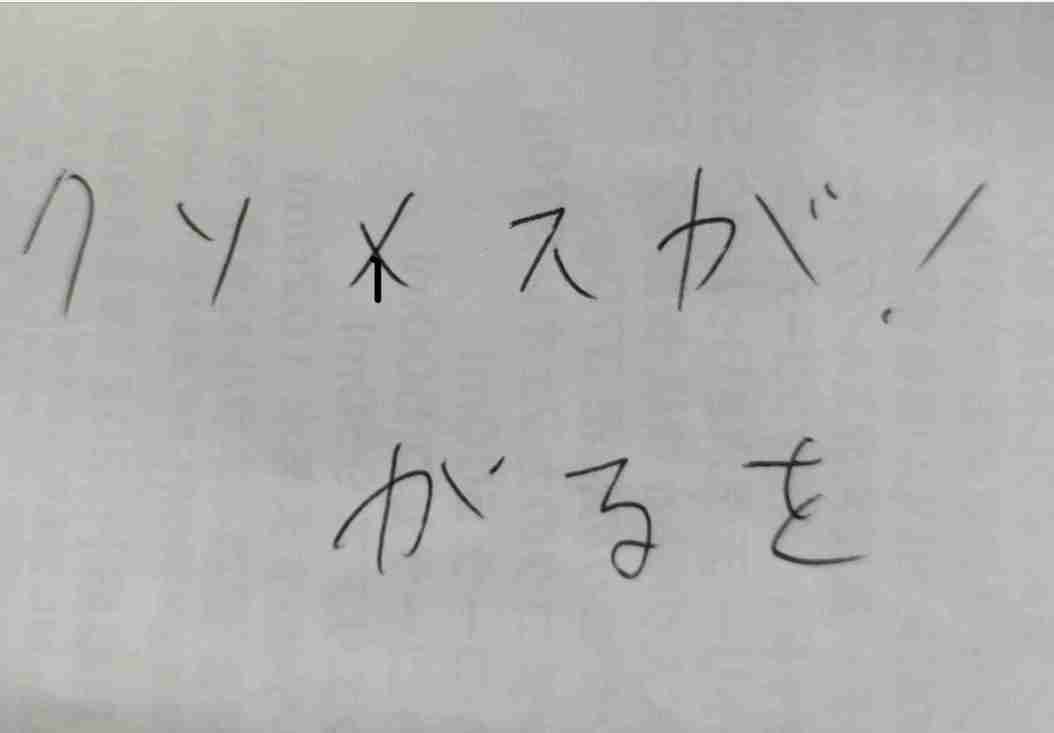 クソメスが!
がるを